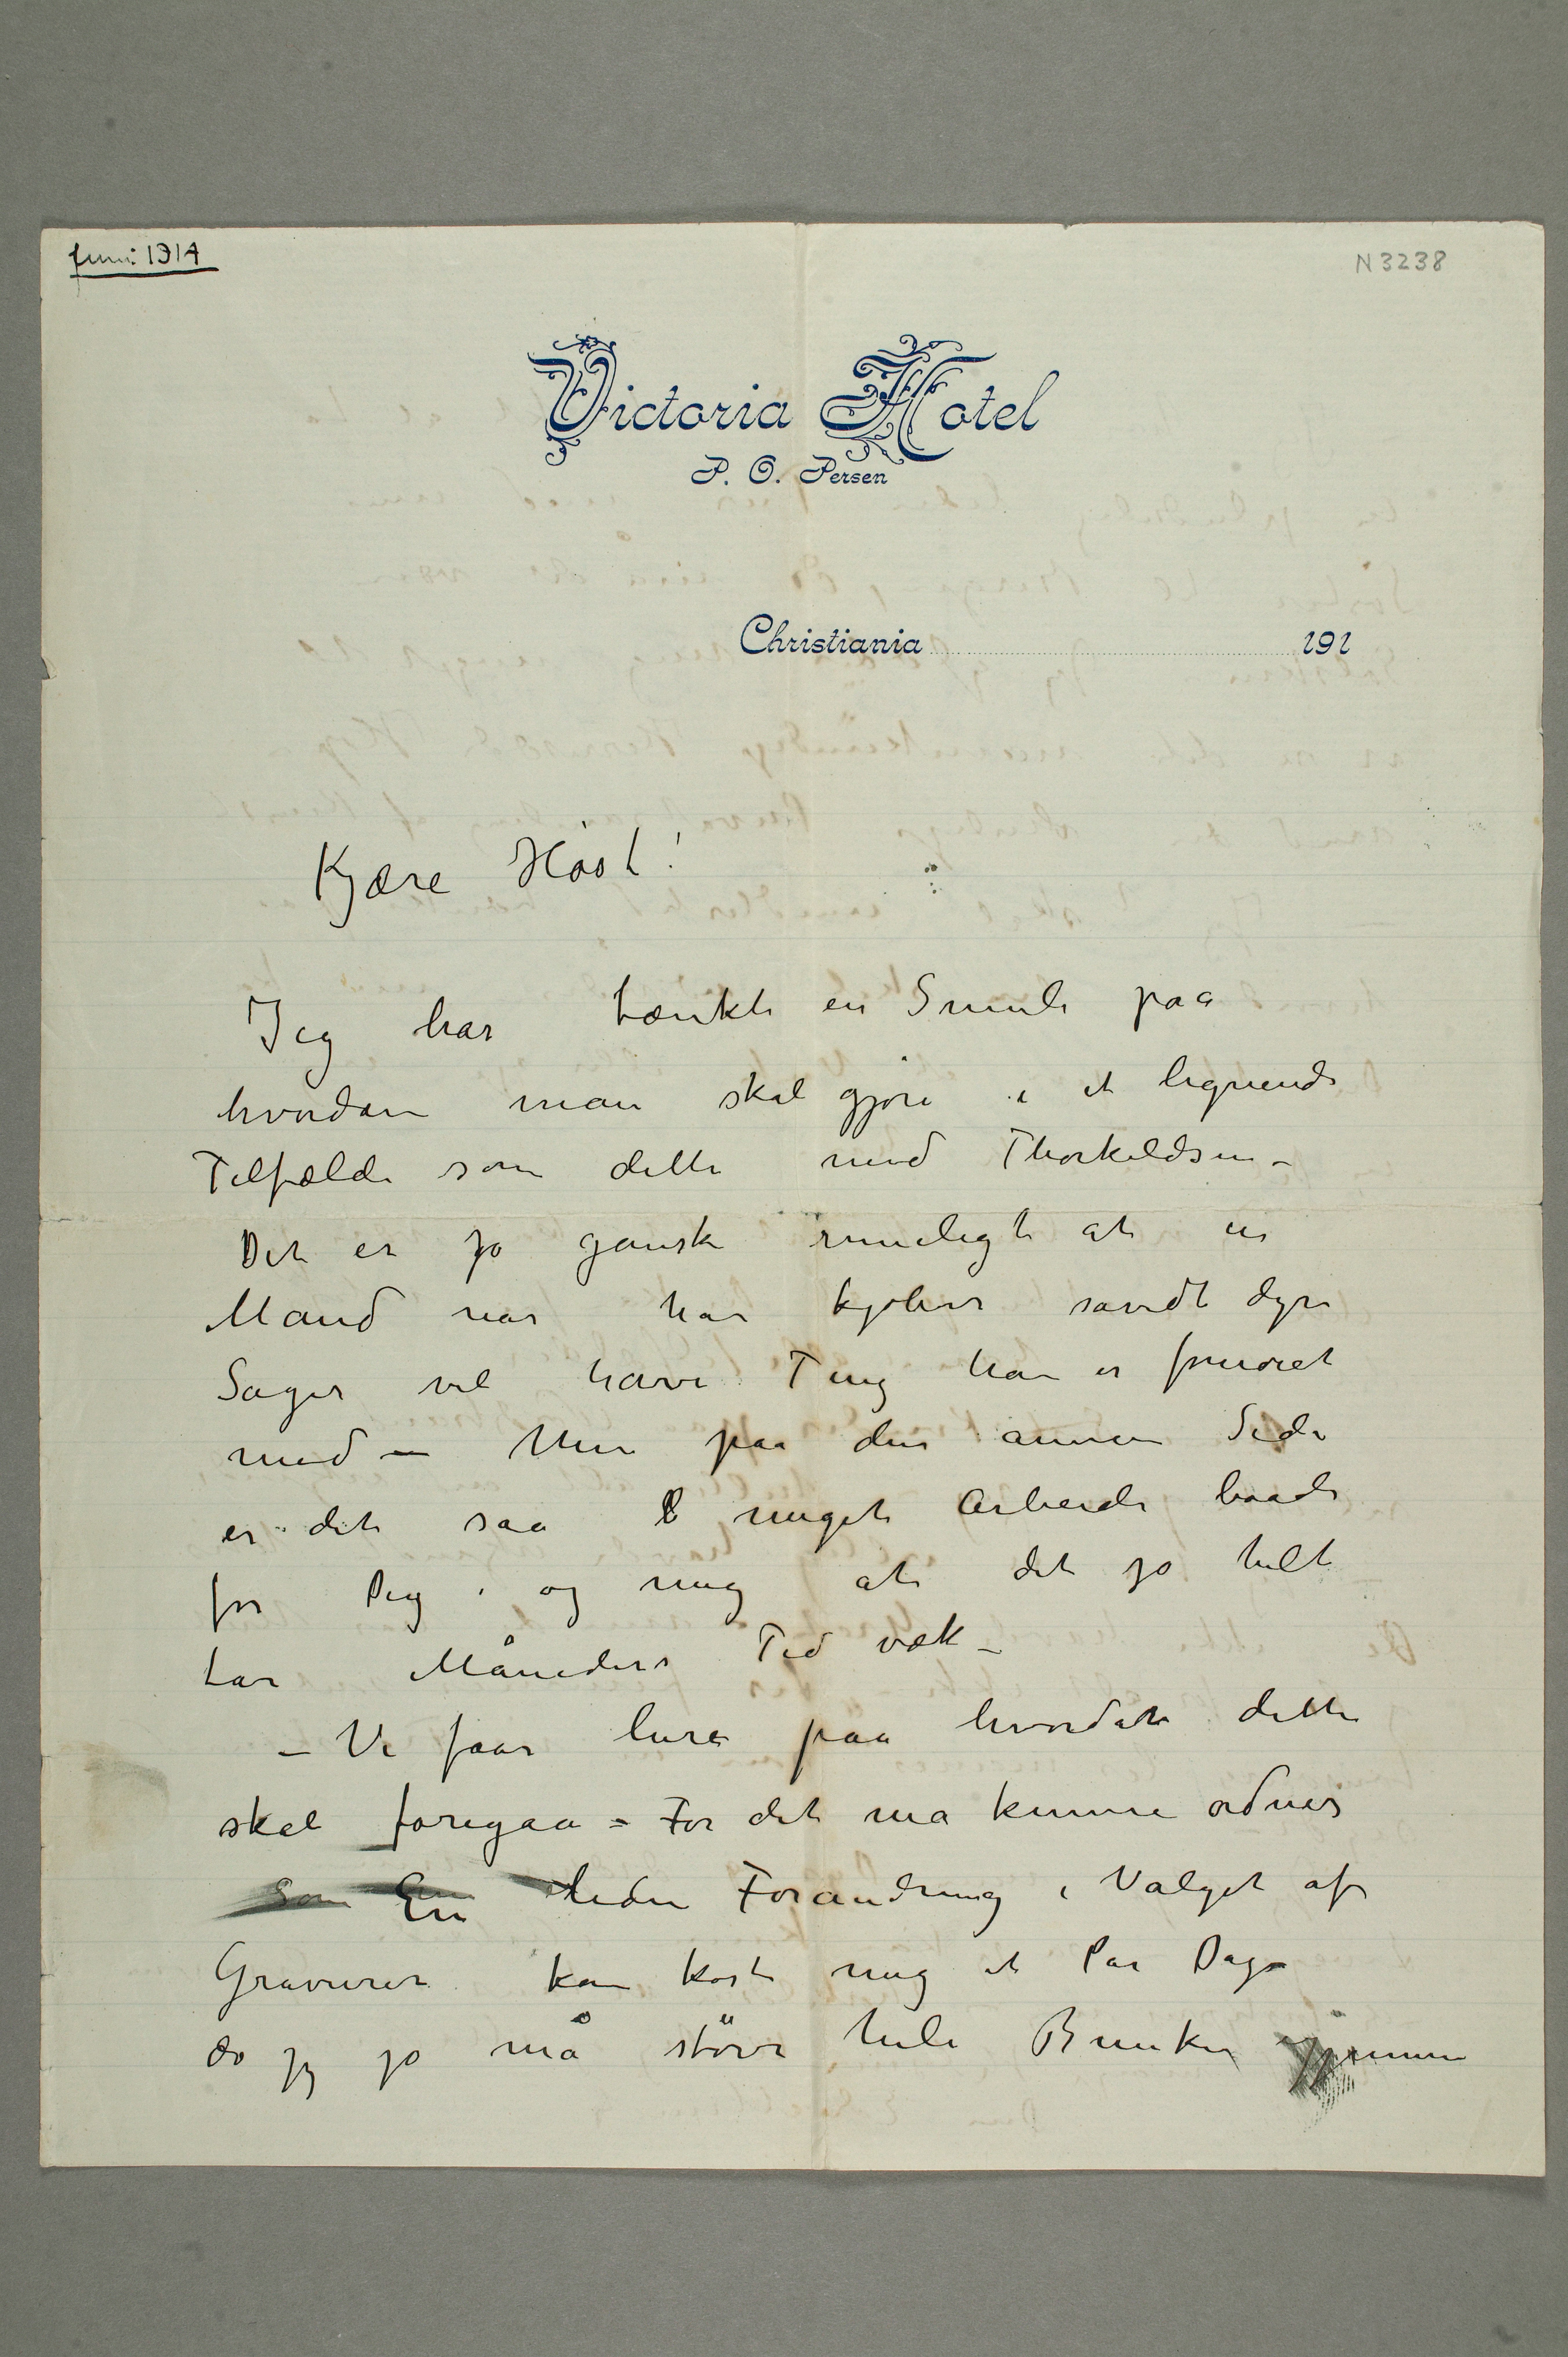 Juni 1914
N 3238
Victoria Hotel
P. O. Persen
Christiania 191
Kjære Høst!
Jeg har tænkt en Smule paa
hvordan man skal gjøre i et lignende
Tilfælde som dette med Thorkildsen –
Det er jo ganske rimeligt at en
Mand når han kjøber såvidt dyre
Sager vil have Ting han er fornøiet
med – Men paa den annen Side
er det saa meget Arbeide baade
for Dig og mig at det jo helt
tar Måneders Tid væk –
– Vi faar lure paa hvordan dette
skal foregaa – For det må kunne ordnes
Som En En liden Forandring i Valget af
Gravurer kan koste mig et Par Dage
da jeg jo må støve hele Bunken gjennem